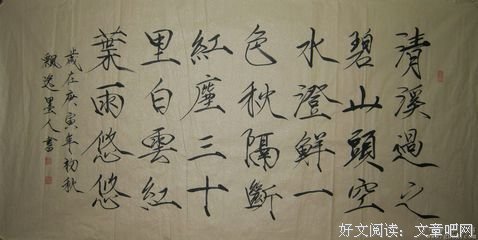 清溪過之
碧山頭空
水澄鮮一
色秋隔斷
紅塵三十
里白雲紅
葉雨悠悠
歲在庚寅年初秋
飄逸墨人書
好文阅读：文章吧网